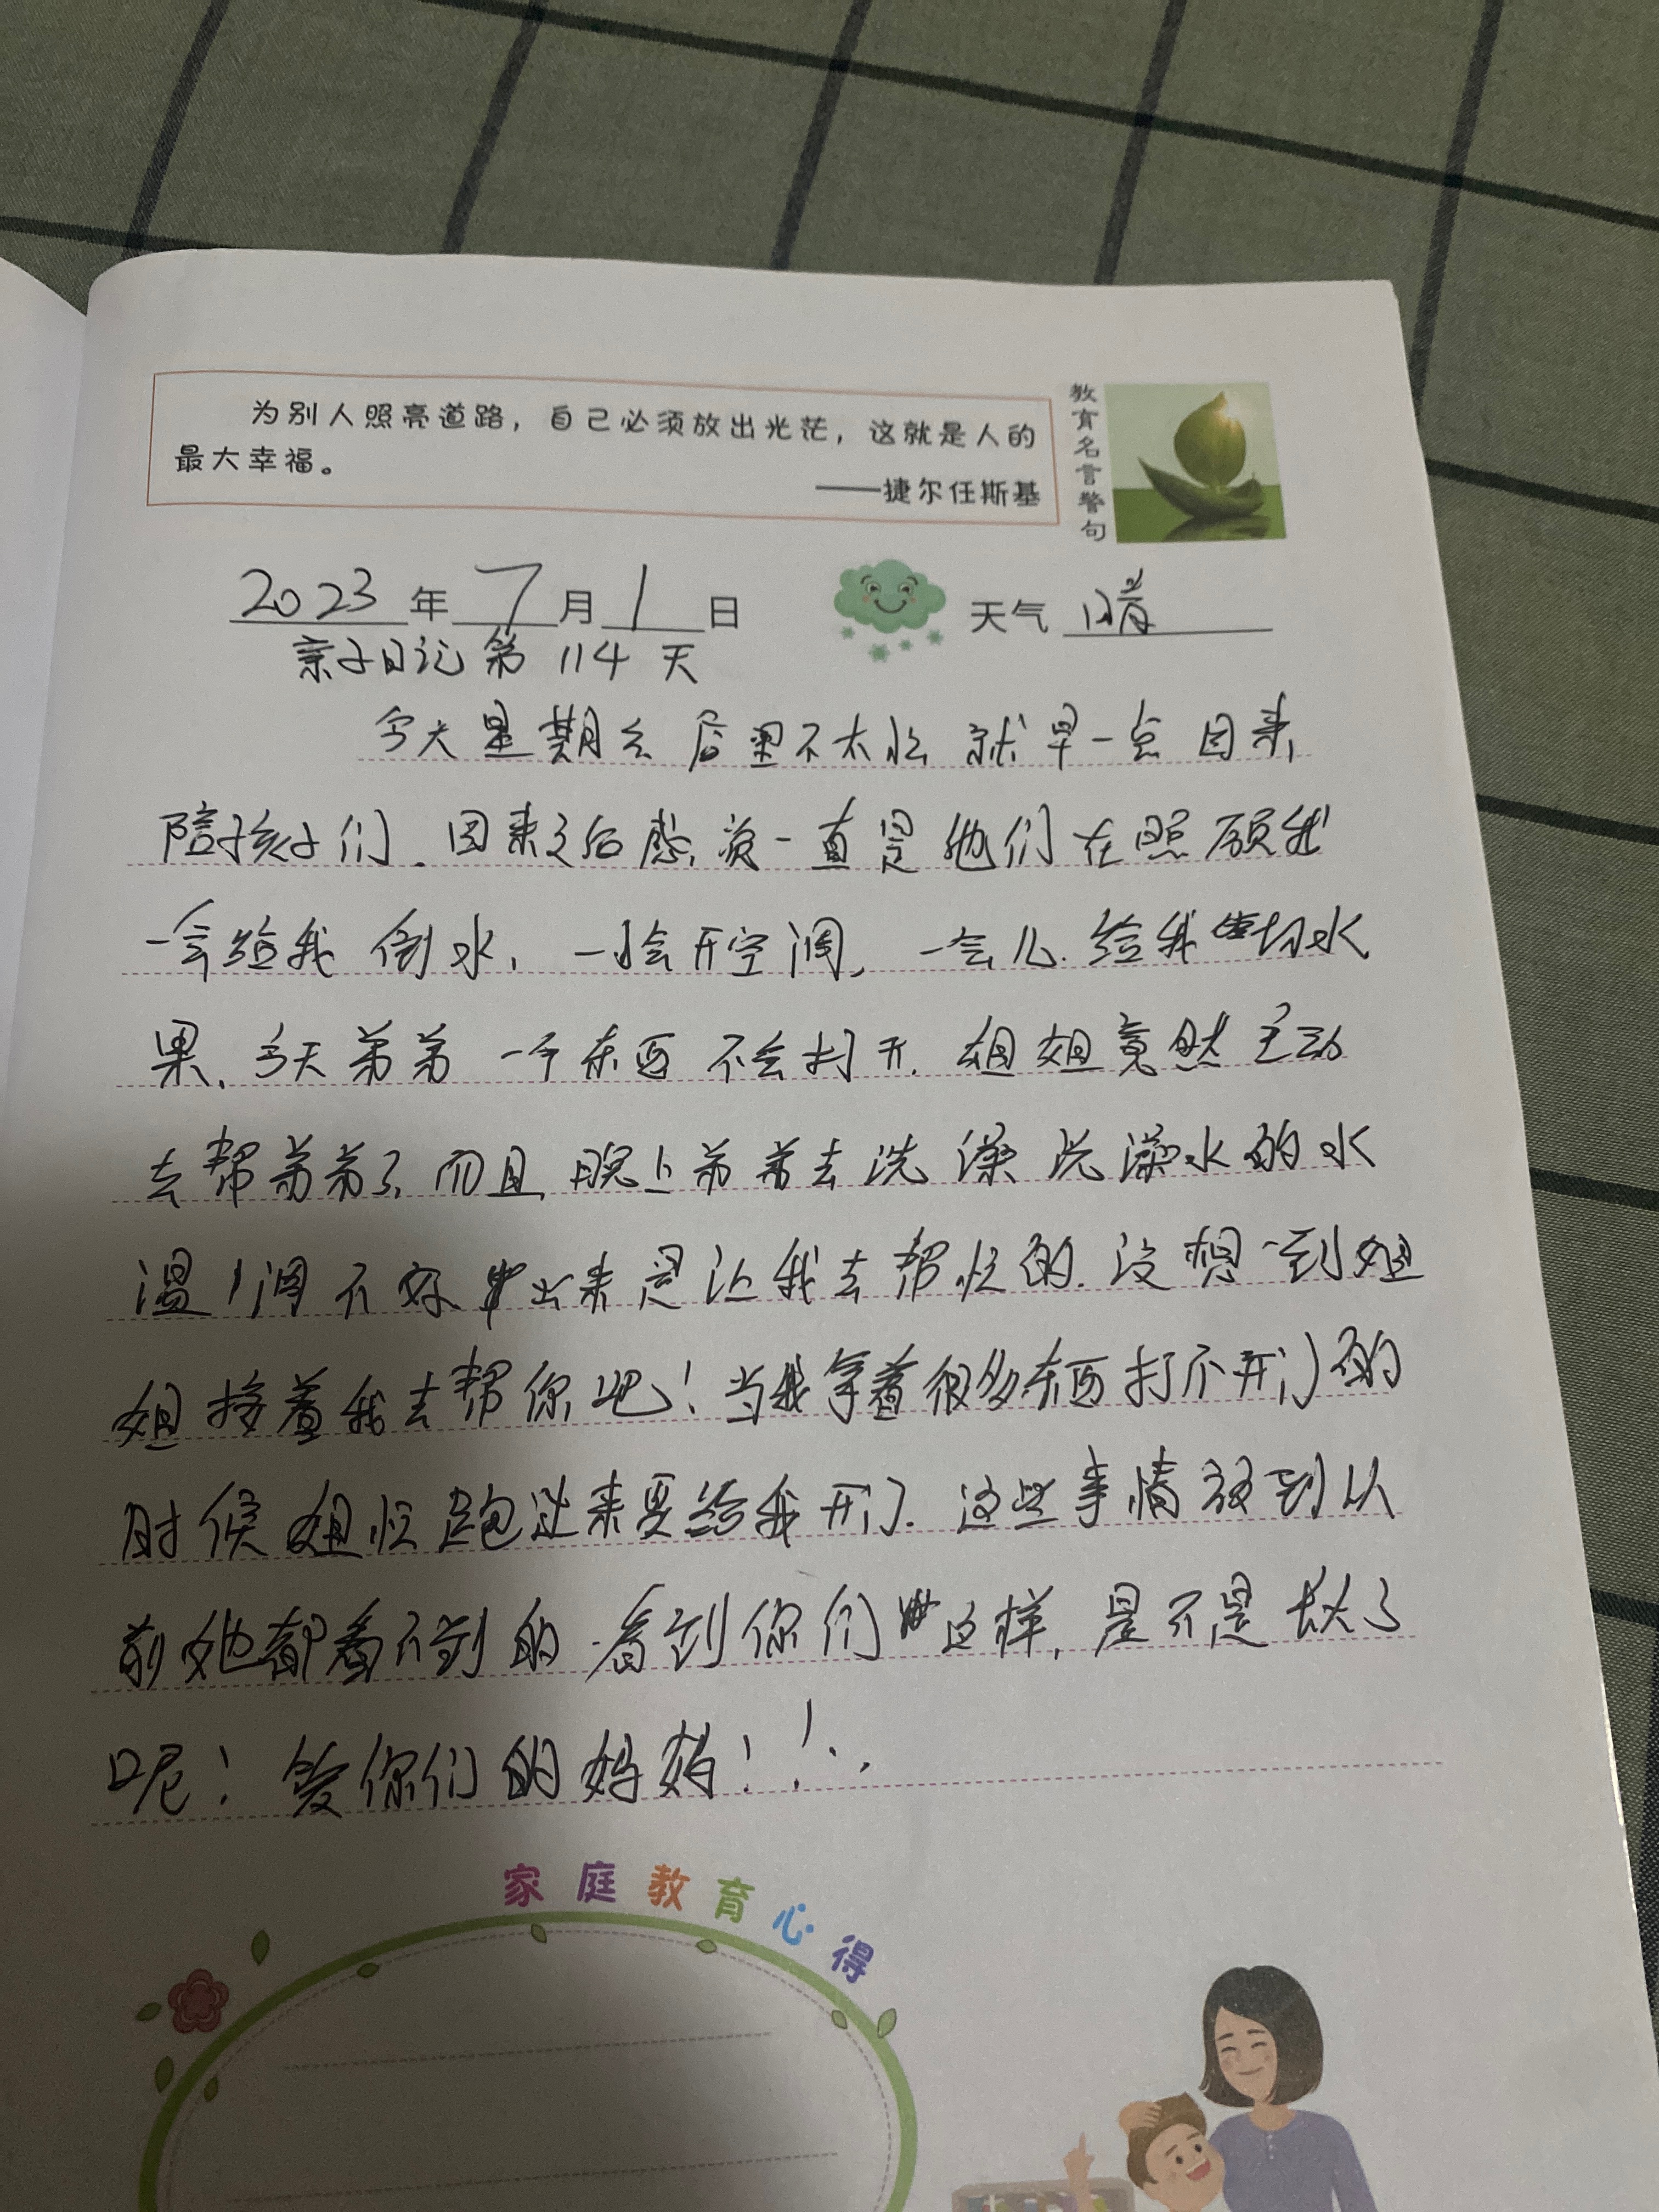 为别人照亮道路，自己必须放出光茫，这就是人的
最大幸福。
——捷尔任斯基
教育名言警句
2023年7月1日
天气 晴
亲子日记第114天
今天是期六店里不太忙 就早一点回来
陪孩子们.回来之后感觉一直是他们在照顾我
一会给我倒水，一会开空调，一会儿给我切水
果、今天弟弟一个东西不会打开.姐姐竟然主动
去帮弟弟了,而且,晚上弟弟去洗澡洗澡水的水
温调不好出来是让我去帮忙的.没想到姐
姐接着我去帮你吧！当我拿着很多东西打不开门的
时候姐忙跑过来要给我开门.这些事情放到以
前她都看不到的.看到你们这样,是不是长大了
呢！爱你们的妈妈！！
家庭教育心得